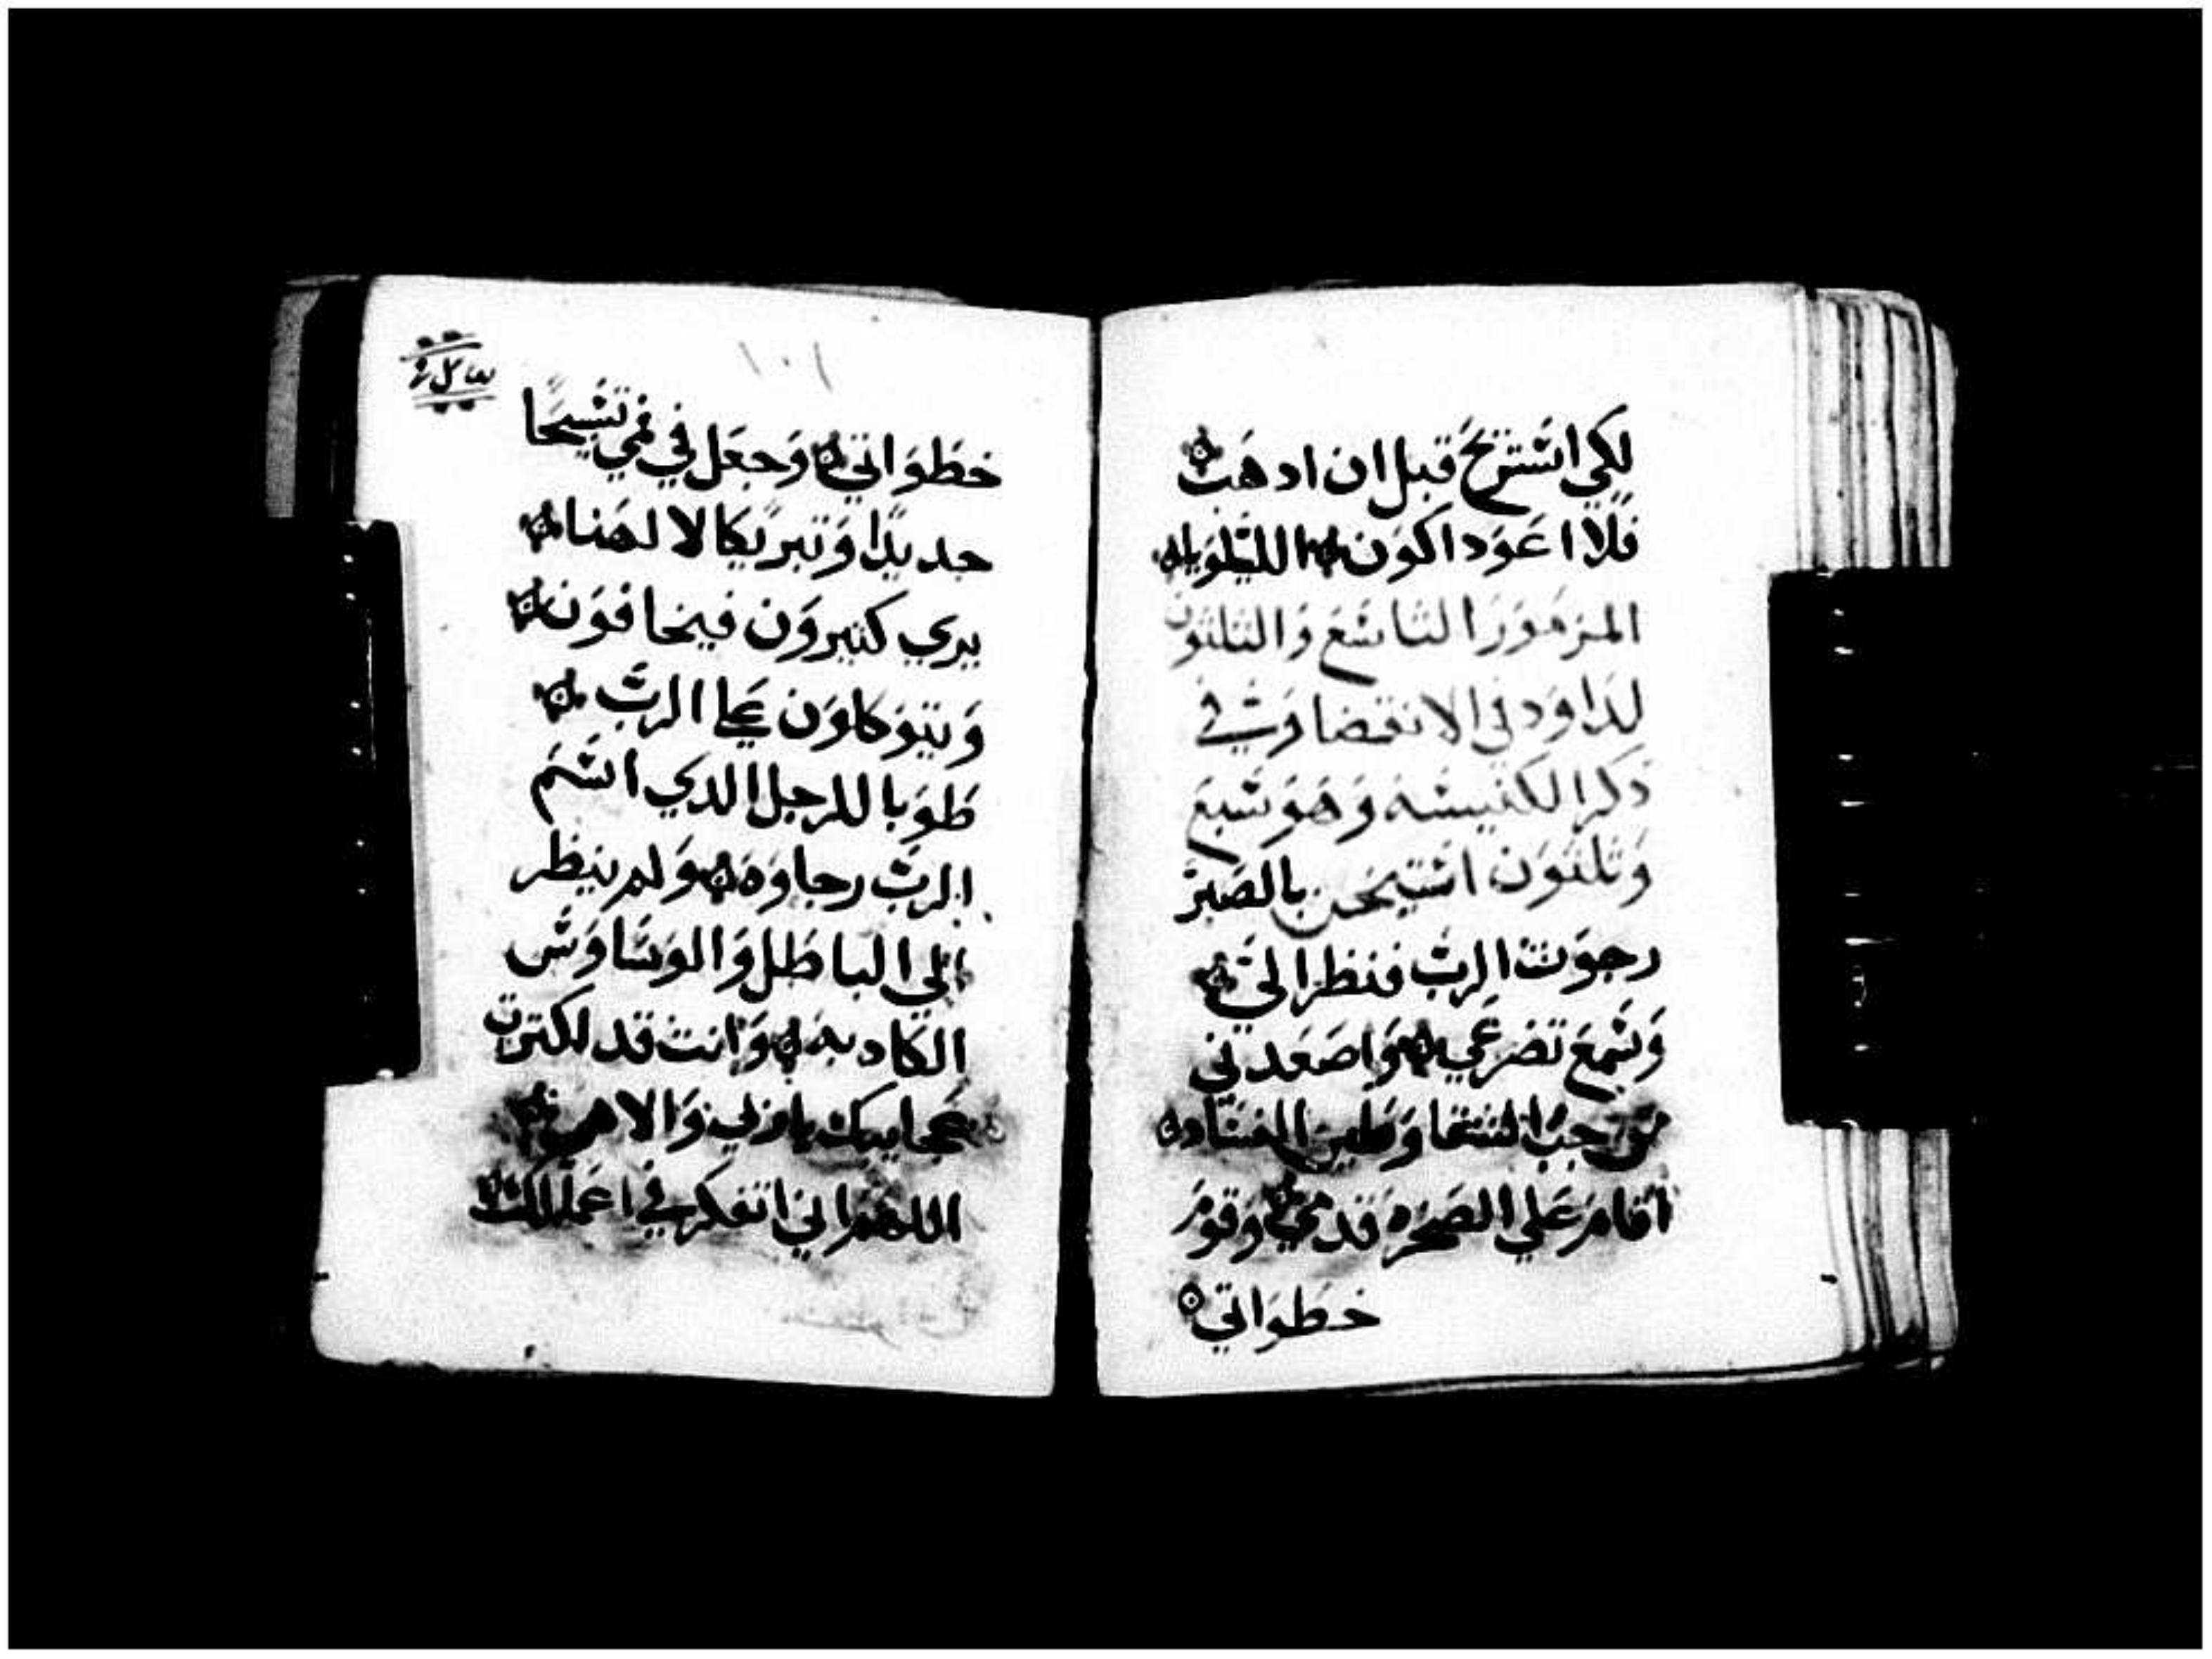 لكي استريح قبل ان ادهب
فلا اعود اكون الليلويا
المزمور التاسع والتلتون
لداود في الانقضا وشي في
دكر الكنيسه وهو سبع
وتلتون استيخن بالصبر
رجوت الرب فنظر الي
وسمع تضرعي واصعدني
من جب الشقا وطين الحماه
اقام علي الصخره قدمي وقوم
خطواتي
١٠١
خطواتي وجعل في فمي تسبيحا
جديدا وتبريكا لالهنا
يري كتيرون فيخافون
ويتوكلون علي الرب
طوبا للرجل الدي اسم
الرب رجاوه ولم ينظر
الي الباطل والوساوس
الكادبه وانت قد اكترت
عجايبك يا ربي والاهي
اللهم اني اتفكر في اعمالك